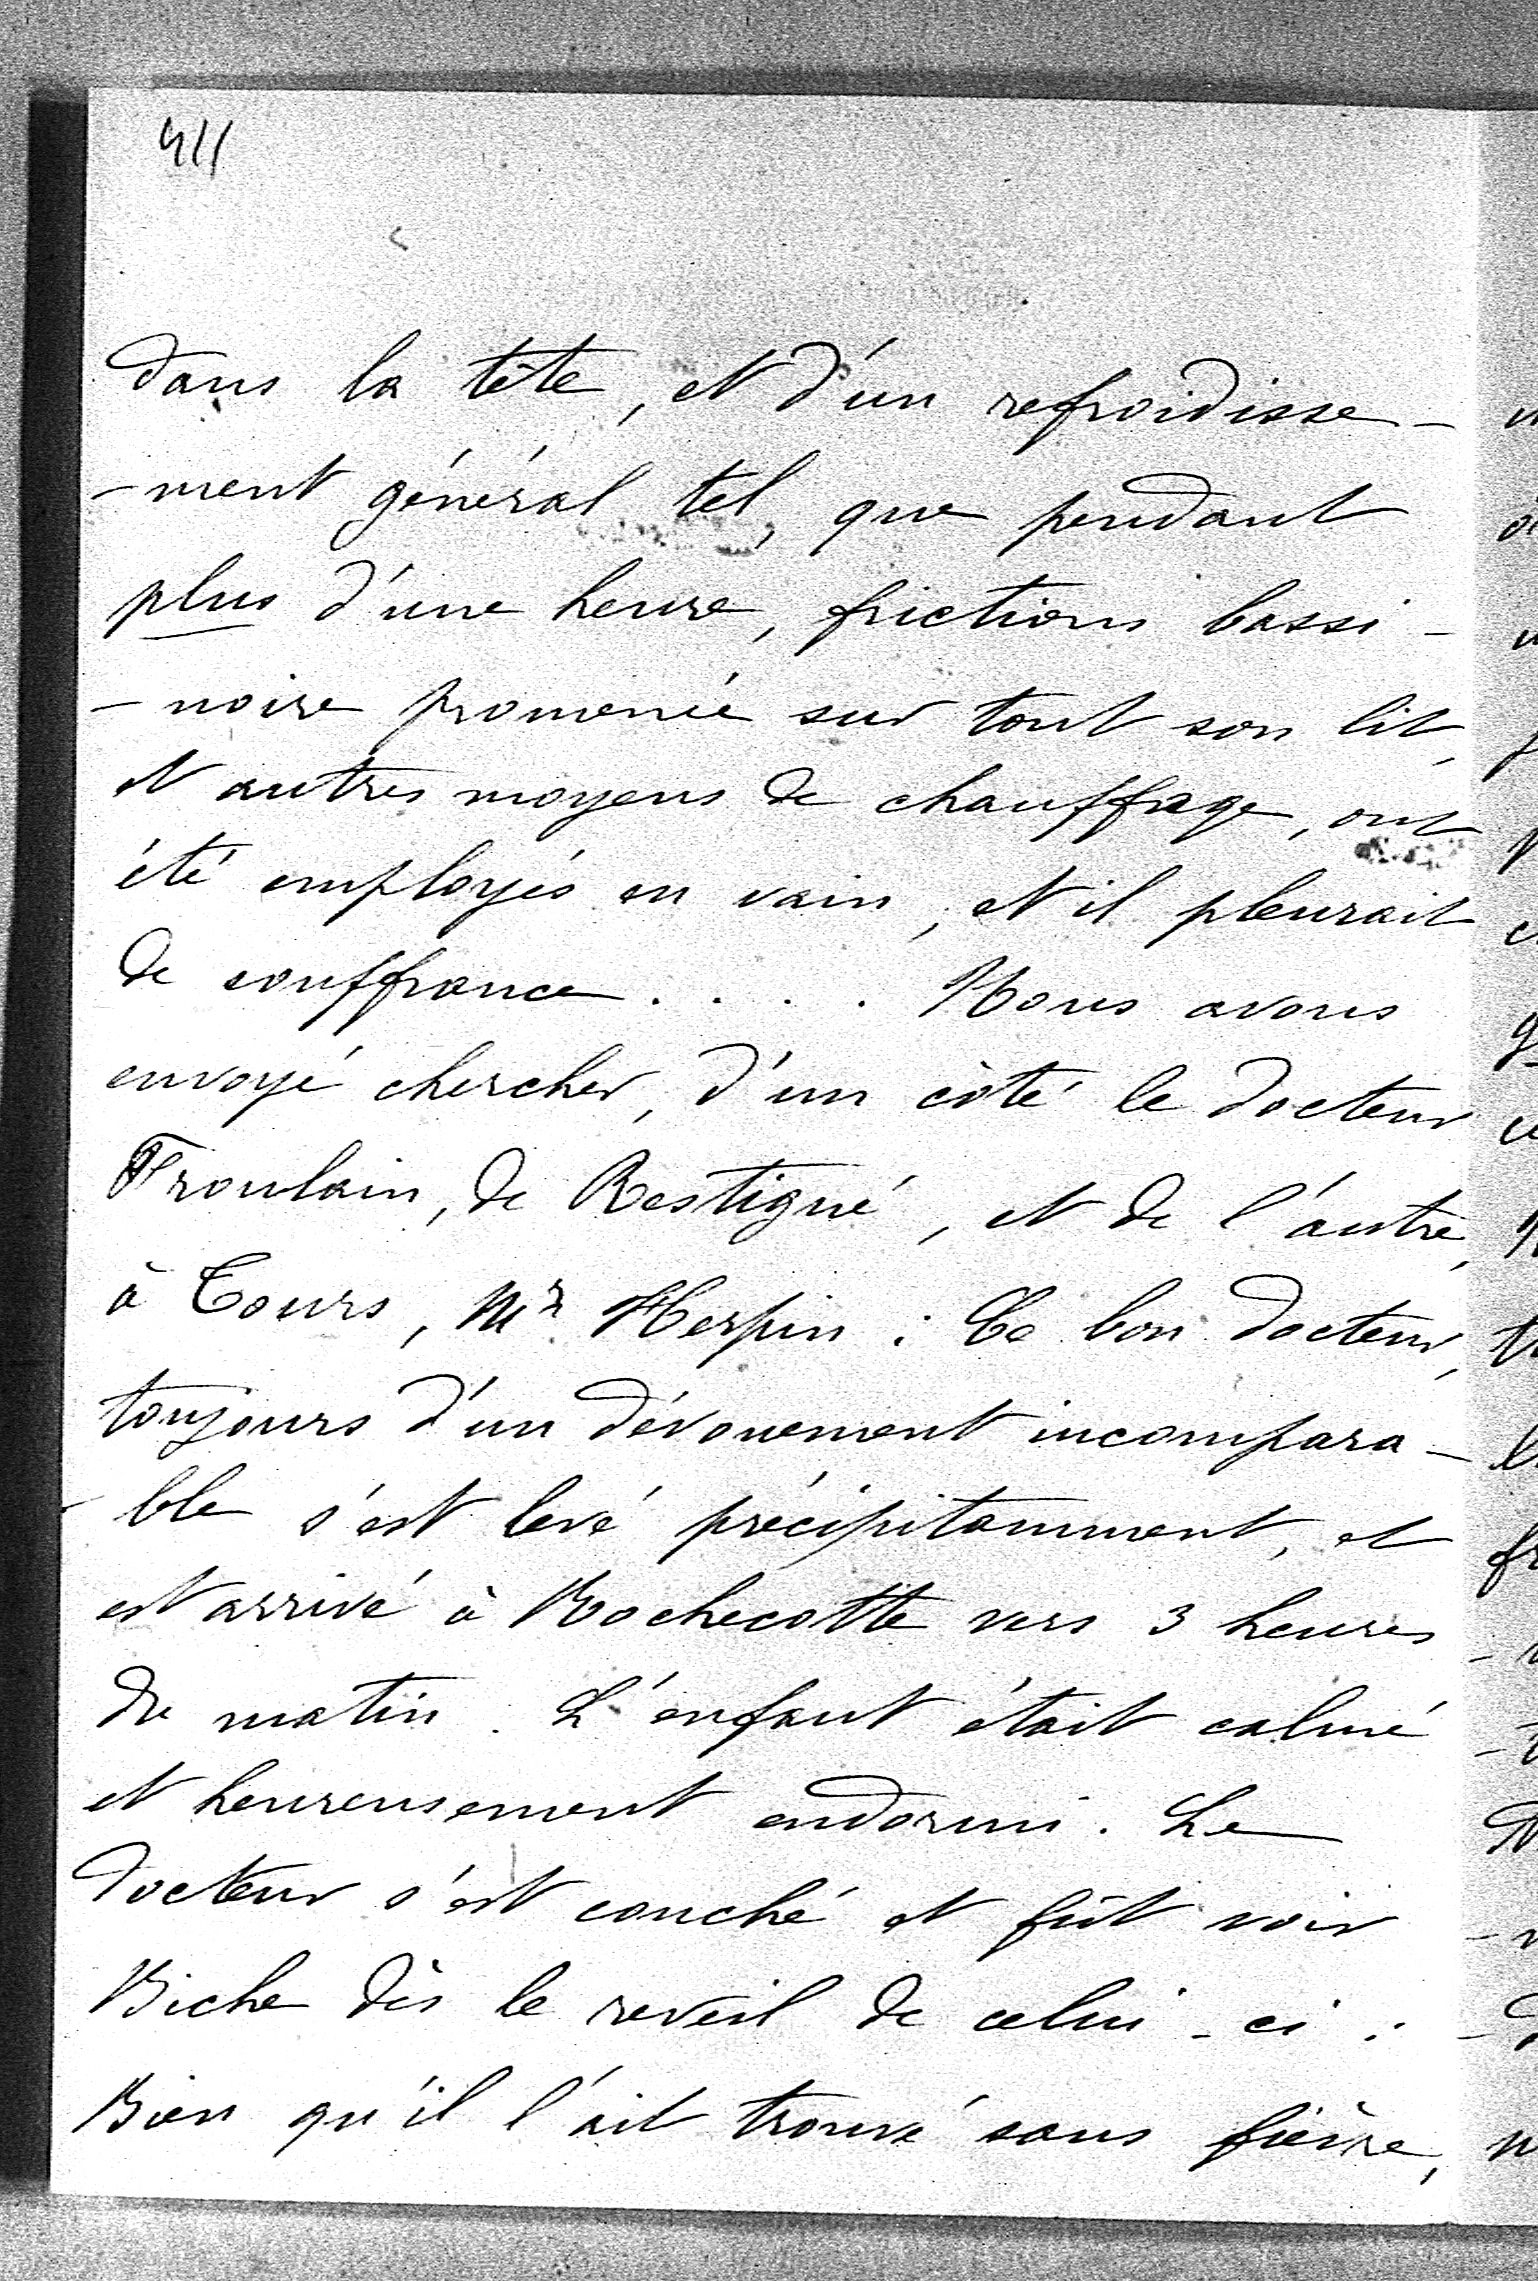 411
dans la tête, et d'un refroidisse-
-ment général tel, que pendant
plus d'une heure, frictions bassi-
-noire promenée sur tout son lit,
et autres moyens de chauffage, ont
été employés en vain, et il pleurait
de souffrance . . . . Nous avons
envoyé chercher, d'un côté le docteur
Froulain, de Restigné, et de l'autre,
à Tours, Mr Herpin : Ce bon docteur,
toujours d'un dévouement incompara-
-ble s'est levé précipitamment, et
est arrivé à Rochecotte vers 3 heures
du matin. L'enfant était calmé
et heureusement endormi. Le
docteur s'est couché et fût voir
Biche dès le reveil de celui-ci :
Bien qu'il l'ait trouvé sans fièvre,